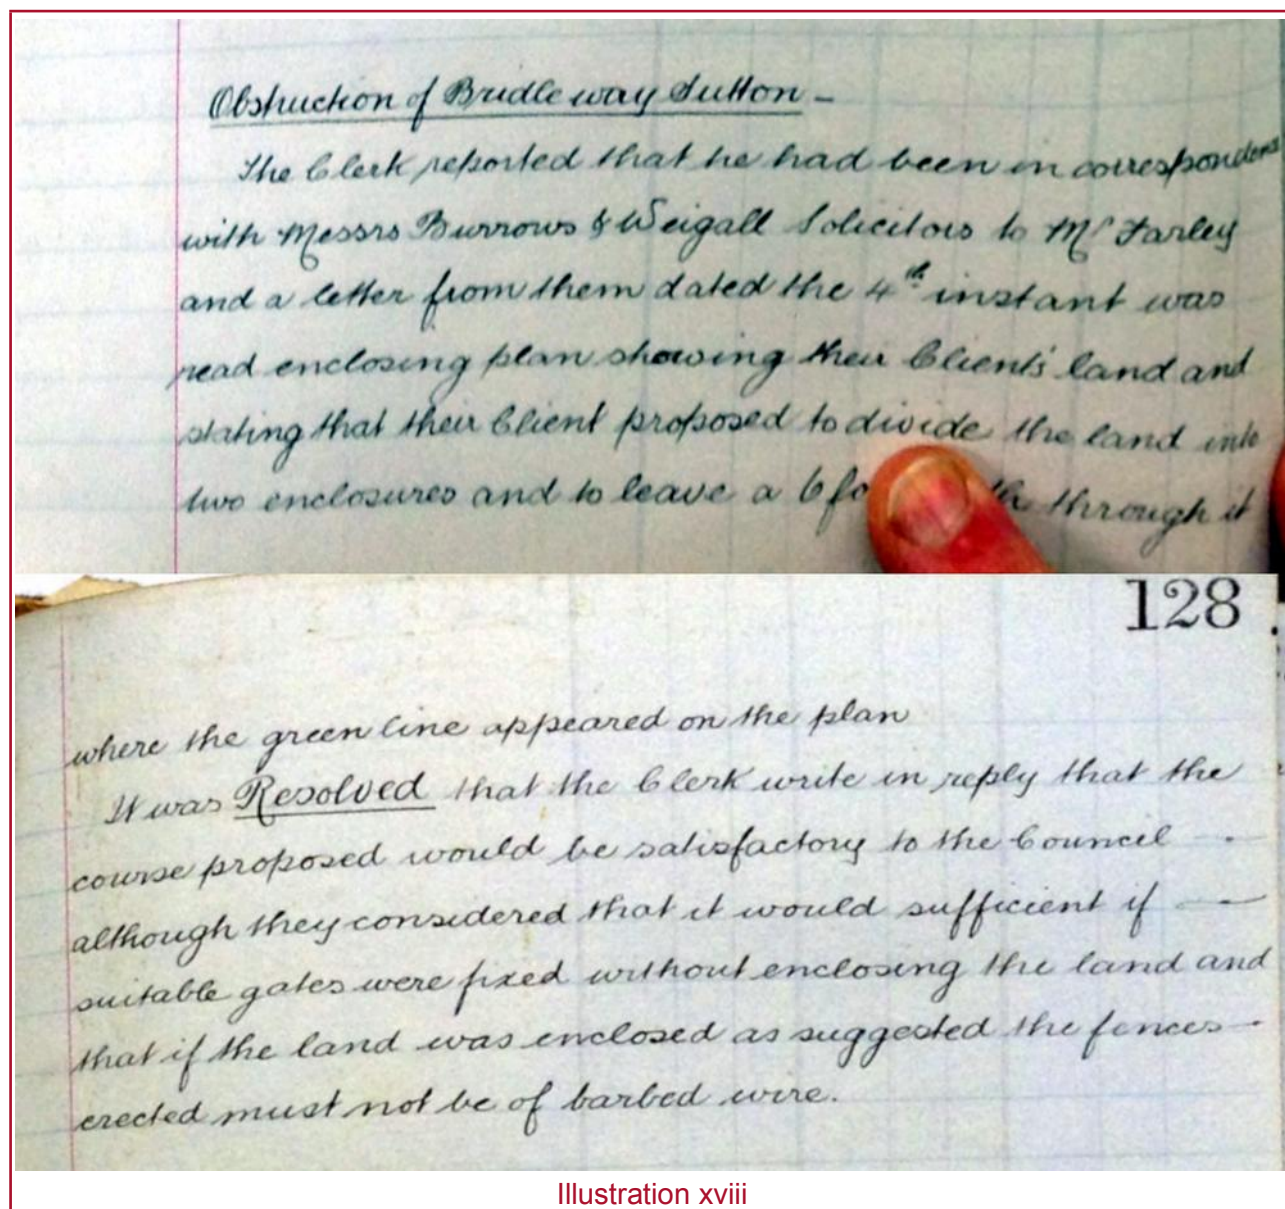 Obstruction of Bridle way Sutton –
The Clerk reported that he had been in
with Messrs Burrows & Weigall Solicitors to Mr Farley
and a letter from them dated the 4th instant was
read enclosing plan showing their Client's land and
stating that their Client proposed to divide the land into
two enclosures and to leave a 6 through it
128
where the green line appeared on the plan
It was Resolved that the Clerk write in reply that the
course proposed would be satisfactory to the Council —
although they considered that it would sufficient if —
suitable gates were fixed without enclosing the land and
that if the land was enclosed as suggested the fences —
erected must not be of barbed wire.
Illustration xviii